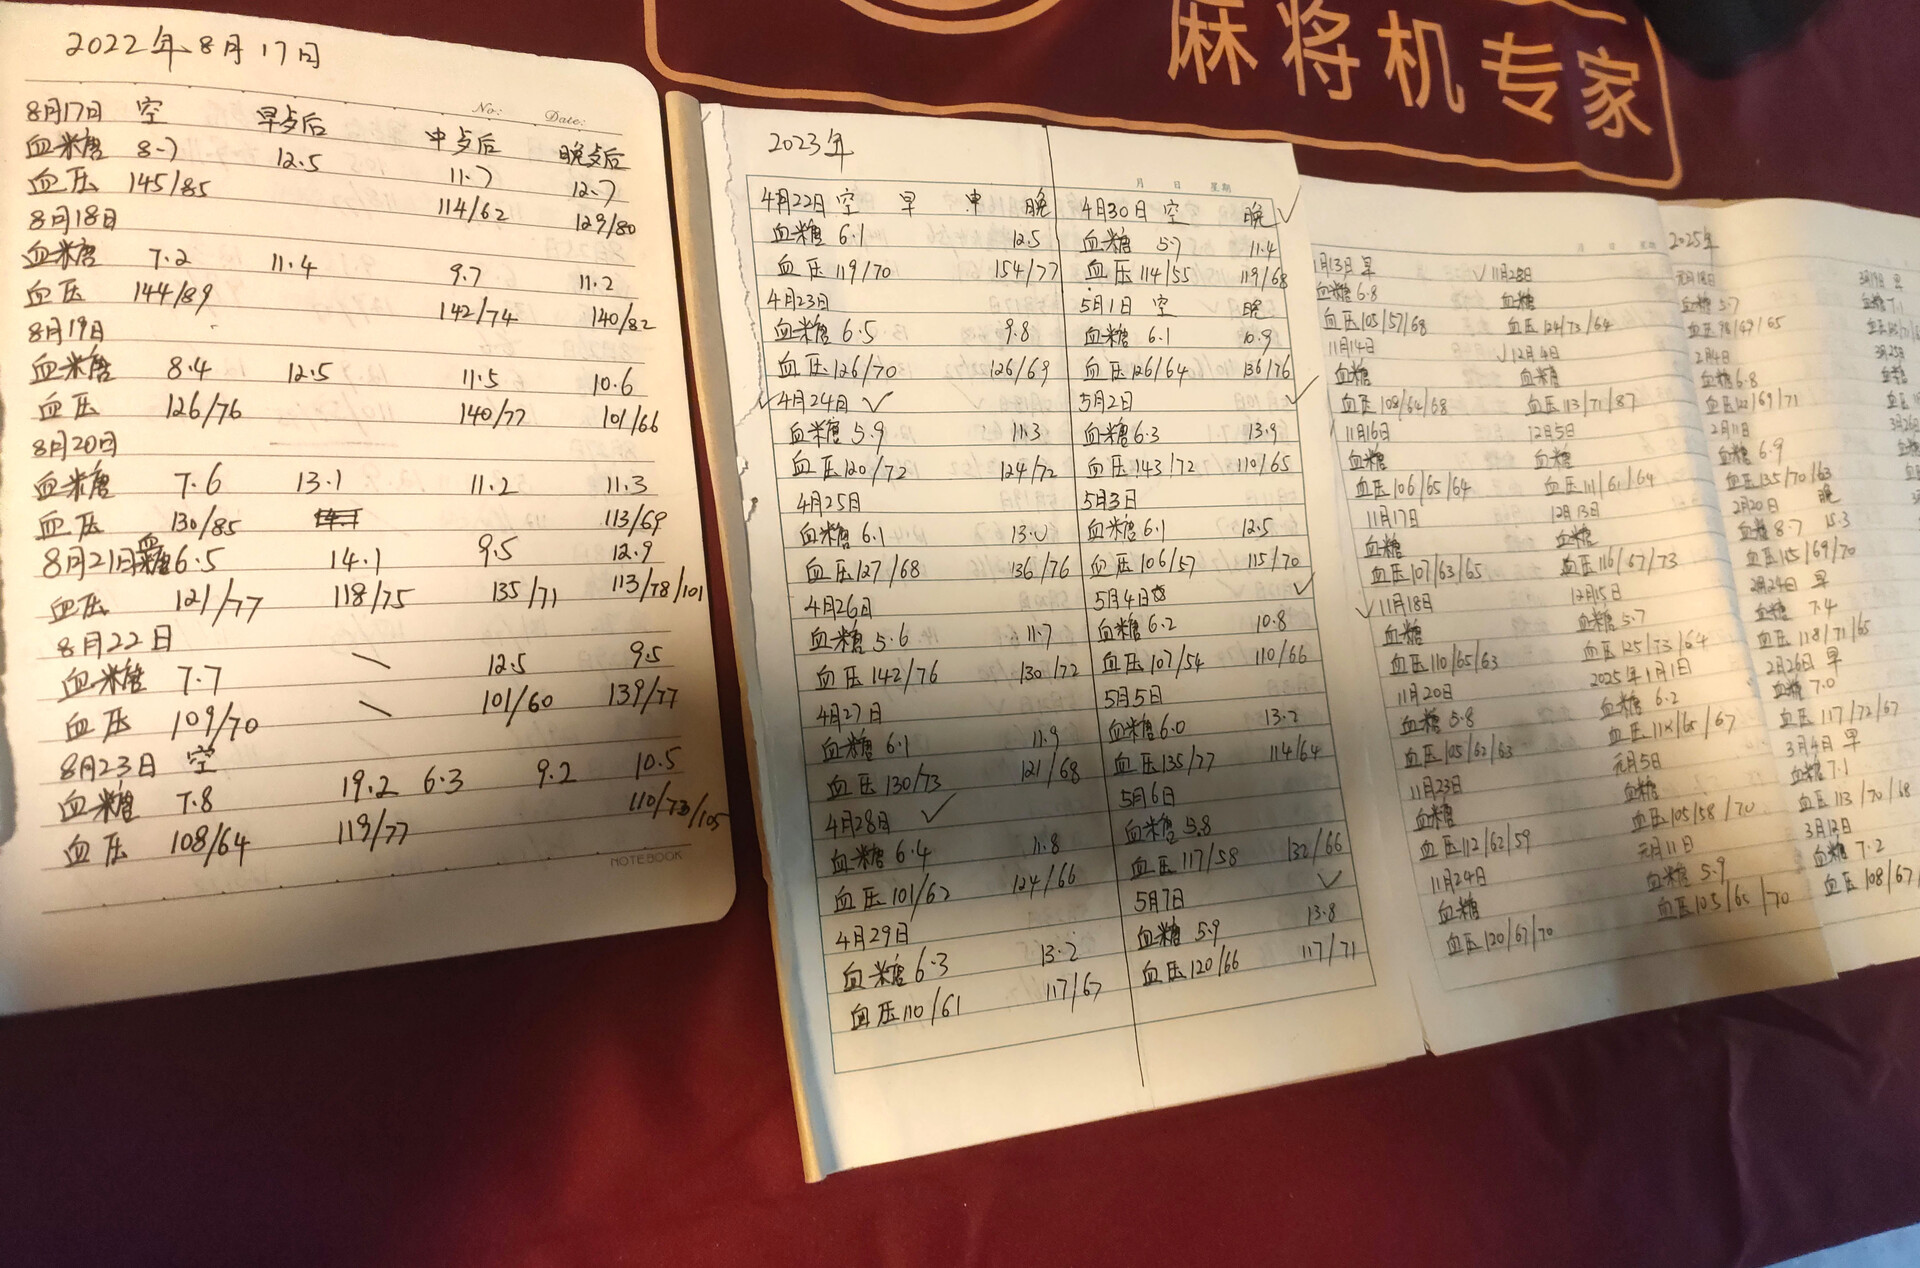 麻将机专家
2022年8月17日
No: Date:
8月17日 空 早点后 中点后 晚点后
血糖 8.7 12.5 11.7 12.7
血压 145/85 114/62 129/80
8月18日
血糖 7.2 11.4 9.7 11.2
血压 144/89 142/74 140/82
8月19日
血糖 8.4 12.5 11.5 10.6
血压 126/76 140/77 101/66
8月20日
血糖 7.6 13.1 11.2 11.3
血压 130/85 113/69
8月21日血糖6.5 14.1 9.5 12.9
血压 121/77 118/75 135/71 113/78/101
8月22日
血糖 7.7 \ 12.5 9.5
血压 109/70 \ 101/60 139/77
8月23日 空
血糖 7.8 19.2 6.3 9.2 10.5
血压 108/64 119/77 110/73/105
NOTEBOOK
2023年
4月22日 空 早 中 晚
血糖 6.1 12.5
血压 119/70 154/77
4月23日
血糖 6.5 9.8
血压 126/70 126/69
4月24日 ✓
血糖 5.9 11.3
血压 120/72 124/72
4月25日
血糖 6.1 13.0
血压 127/68 136/76
4月26日
血糖 5.6 11.7
血压 142/76 130/72
4月27日
血糖 6.1 11.9
血压 130/73 121/68
4月28日 ✓
血糖 6.4 11.8
血压 101/62 124/66
4月29日
血糖 6.3 13.2
血压 110/61 117/67
月 日 星期
4月30日 空 晚 ✓
血糖 5.7 11.4
血压 114/55 119/68
5月1日 空 晚
血糖 6.1 10.9
血压 126/64 136/76
5月2日 ✓
血糖 6.3 13.9
血压 143/72 110/65
5月3日
血糖 6.1 12.5
血压 106/57 115/70
5月4日 ✓
血糖 6.2 10.8
血压 107/54 110/66
5月5日
血糖 6.0 13.2
血压 135/77 114/64
5月6日
血糖 5.8
血压 117/58 132/66
5月7日 ✓
血糖 5.9 13.8
血压 120/66 117/71
月 日 星期
1月13日 早
血糖 6.8
血压 105/57/68
11月14日
血糖
血压 108/64/68
11月16日
血糖
血压 106/65/64
11月17日
血糖
血压 107/63/65
✓ 11月18日
血糖
血压 110/65/63
11月20日
血糖 5.8
血压 105/62/63
11月23日
血糖
血压 112/62/59
11月24日
血糖
血压 120/67/70
✓ 11月28日
血糖
血压 124/73/64
✓ 12月4日
血糖
血压 113/71/87
12月5日
血糖
血压 111/61/64
12月13日
血糖
血压 116/67/73
12月15日
血糖 5.7
血压 125/73/64
2025年1月1日
血糖 6.2
血压 118/65/67
元月5日
血糖
血压 105/58/70
元月11日
血糖 5.9
血压 105/65/70
2025年
元月18日
血糖 5.7
血压 98/69/65
2月4日
血糖 6.8
血压 122/69/71
2月11日
血糖 6.9
血压 135/70/63
2月20日 晚
血糖 8.7 15.3
血压 115/69/70
2月24日 早
血糖 7.4
血压 118/71/65
2月26日 早
血糖 7.0
血压 117/72/67
3月4日 早
血糖 7.1
血压 113/70/68
3月12日
血糖 7.2
血压 108/67/
3月19日 早
血糖 7.1
3月25日
血糖
3月26日